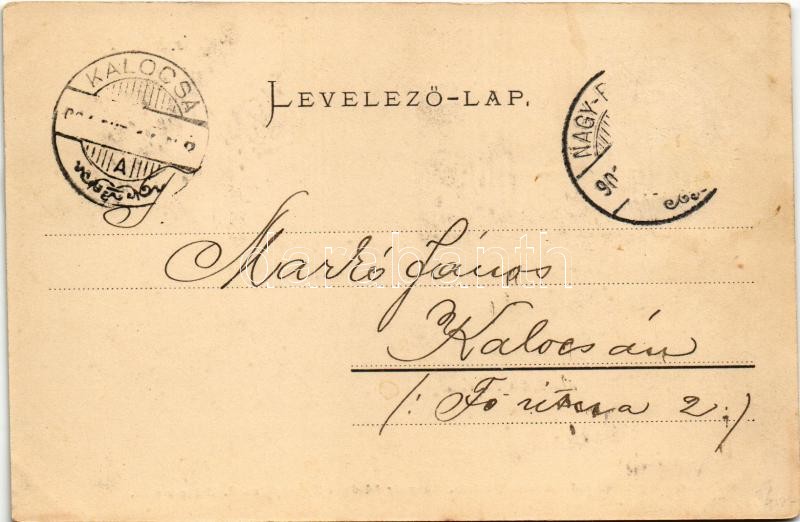 LEVELEZŐ-LAP.
KALOCSA
A
NAGY-
90
darabanth
Markó János
Kalocsán
/: Fő útcza 2 :/